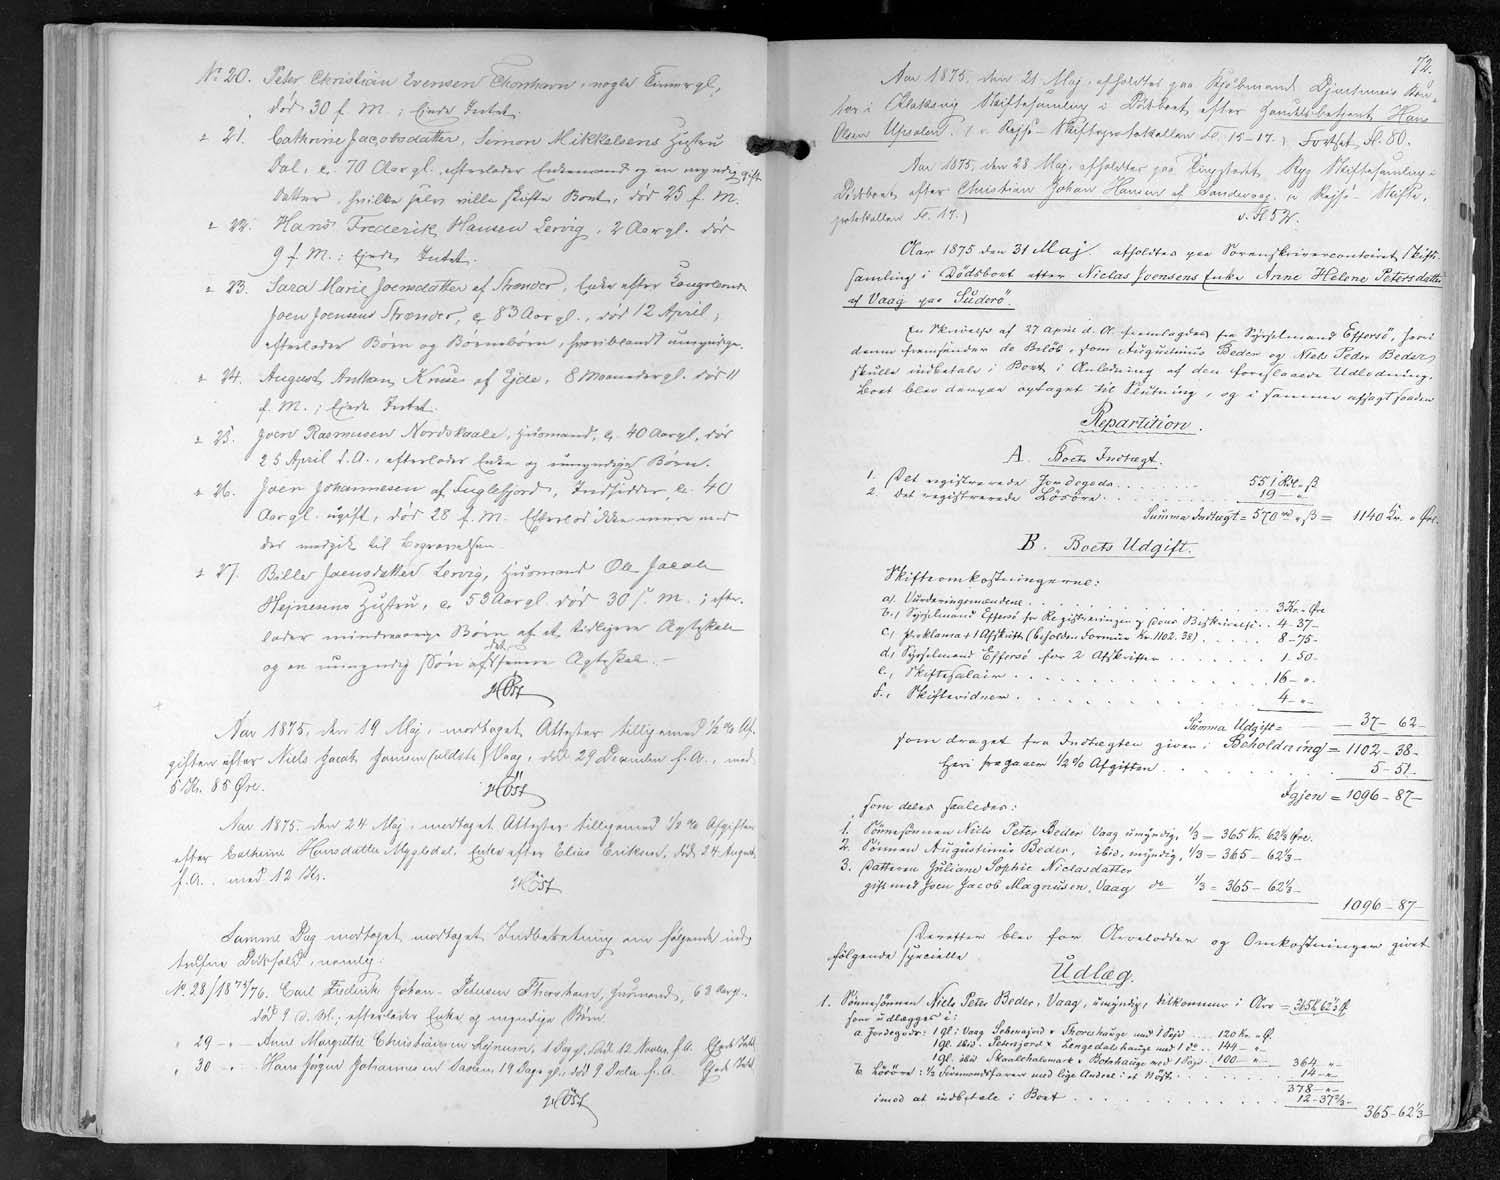 No 20. Peter Christian Evensen Thorshavn, nogle Timer gl,
død 30 f. M.; Ejede Intet.
" 21. Cathrine Jacobsdatter, Simon Mikkelsens Hustru
Dal, c. 70 Aar gl. efterlader Enkemand og en myndig gift
Datter, hvilke selv ville skifte Boet, død 25 f. M.
" 22. Hans Frederik Hansen Lervig, 2 Aar gl. død
9 f. M.; Ejede Intet.
" 23. Sara Marie Joensdatter af Strænder, Enke efter Kongsbonde
Joen Joensens Strænder, c. 83 Aar gl., død 12 April;
efterlader Børn og Børnebørn, hvoriblandt umyndige.
" 24. August Anthon Kruse af Ejde, 8 Maaneder gl. død 11
f. M.; Ejede Intet.
" 25. Joen Rasmussen Nordskaale, Husmand, c. 40 Aar gl, død
25 April d. A., efterlader Enke og umyndige Børn.
" 26. Joen Johannesen af Fuglefjord, Indsidder, c. 40
Aar gl. ugift, død 28 f. M. Efterlod ikke mere end
der medgik til Begravelsen.
" 27. Bille Joensdatter Lervig, Husmand Ole Jacob
Hejnesens Hustru, c. 53 Aar gl. død 30 f. M.; efter-
lader mindreaarige Børn af et tidligere Ægteskab
og en umyndig Søn af det senere Ægteskab. -
Høst
Aar 1875, den 19 Maj, modtaget Attester tilligemed 1/2 % Af-
giften efter Niels Jacob Joensen (ældste) Vaag, død 29 December f. A., med
5 Kr. 85 Øre.
Høst
Aar 1875, den 24 Maj, modtaget Attester tilligemed 1/2 % Afgiften
efter Cathrine Hansdatter Mygledal, Enke efter Elias Eriksen, død 24 August
f. A. med 12 Kr.
Høst
Samme Dag modtaget modtaget Indberetning om følgende ind-
trufne Dødsfald, nemlig:
No 28/1875/76. Carl Frederik Johan Petersen Thorshavn, Husmand, 63 Aar gl.
død 9 d. M.; efterlader Enke og myndige Børn
" 29 - " - Anne Margrethe Christiansen Hejnum, 1 Dag gl., død 12 Novbr. f. A. Ejede Intet
" 30 - " - Hans Jørgen Johannesen 19 Dage gl., død 9 Decbr. f. A. Ejede Intet
Høst
72.
Aar 1875, den 21 Maj, afholdtes paa Kjøbmand
tor i Klaksvig Skiftesamling i Dødsboet efter Handelsbetjent Hans
Olsen Upsalen. (v. Rejse-Skifteprotokollen Fl. 15-17.) Fortsat Fl. 80.
Aar 1875, den 28 Maj, afholdtes paa Skiftesamling i
Dødsboet efter Christian Johan Hansen af Sandevaag. (v. Rejse-Skifte-
protokollen Fl. 17.)
Aar 1875 den 31 Maj afholdtes paa Sorenskrivercontoiret Skifte-
samling i Dødsboet efter Niclas Joensens Enke Anne Helene Petersdatter
af Vaag paa Suderø.
En Skrivelse af 27 April d. A. fremlagdes fra Sysselmand Effersø, hvori
denne fremsender de Beløb, som Augustinus Beder og Niels Peder Beder
skulle indbetale i Boet i Anledning af den foreslaaede Udlodning.
Boet blev derpaa optaget til Slutning, og i samme afsagt saadan
Repartition.
A. Boets Indtægt.
1. Det registrerede Jordegods . . . . . 551 Rd. - ß
2. Det registrerede Løsøre . . . . . 19 - "
Summa Indtægt = 570 rd " ß = 1140 Kr. " Øre.
B. Boets Udgift.
Skifteomkostningerne:
a, Vurderingsmændene . . . . . 3 Kr. " Øre
b, Sysselmand Effersø for Registreringen og dens Beskrivelse . . 4 - 37 -
c, Proklama + 1 Afskrift (beholden Formue Kr. 1102. 38) . . . . 8 - 75 -
d, Sysselmand Effersø for 2 Afskrifter . . . . . 1 - 50 -
e, Skiftesalair . . . . . 16 - " .
f, Skiftevidner . . . . . 4 - " -
Summa Udgift = 37 - 62 -
som draget fra Indtægten giver i Beholdning = 1102 - 38 -
Heri fragaaer 1/2 % Afgiften . . . . . 5 - 51 -
Igjen = 1096 - 87 -
som deles saaledes:
1. Sønnesønnen Niels Peter Beder Vaag umyndig, 1/3 = 365 Kr. 62 1/3 Øre.
2. Sønnen Augustinus Beder, ibid, myndig, 1/3 = 365 - 62 1/3 -
3. Datteren Juliane Sophie Niclasdatter
gift med Joen Jacob Magnusen, Vaag do 1/3 = 365 - 62 1/3 -
1096 - 87 -
Derefter blev for Arvelodder og Omkostninger givet
følgende specielle
Udlæg.
1. Sønnesønnen Niels Peter Beder, Vaag, umyndig, tilkommer i Arv = 365 Kr. 62 1/3 Ø.
som udlægges i:
a, Jordegods: 1 gl. i Vaag Sebenajord & Thoreshauge med 1 Pejs . . . 120 Kr. " Ø.
1 gl. ibid. Petersjord & Lengedalshauge med 1 do . . 144 - " .
1 gl. ibid Skaalehalsmark & Botnhauge med 1 Pejs . 100 - " - 364 " -
b. Løsøre: 1/2 Firemandsfarer med lige Andeel i et Nøst . . . . . 14 - " -
378 - " -
imod at indbetale i Boet . . . . . 12 - 37 2/3 -
365 - 62 1/3 -